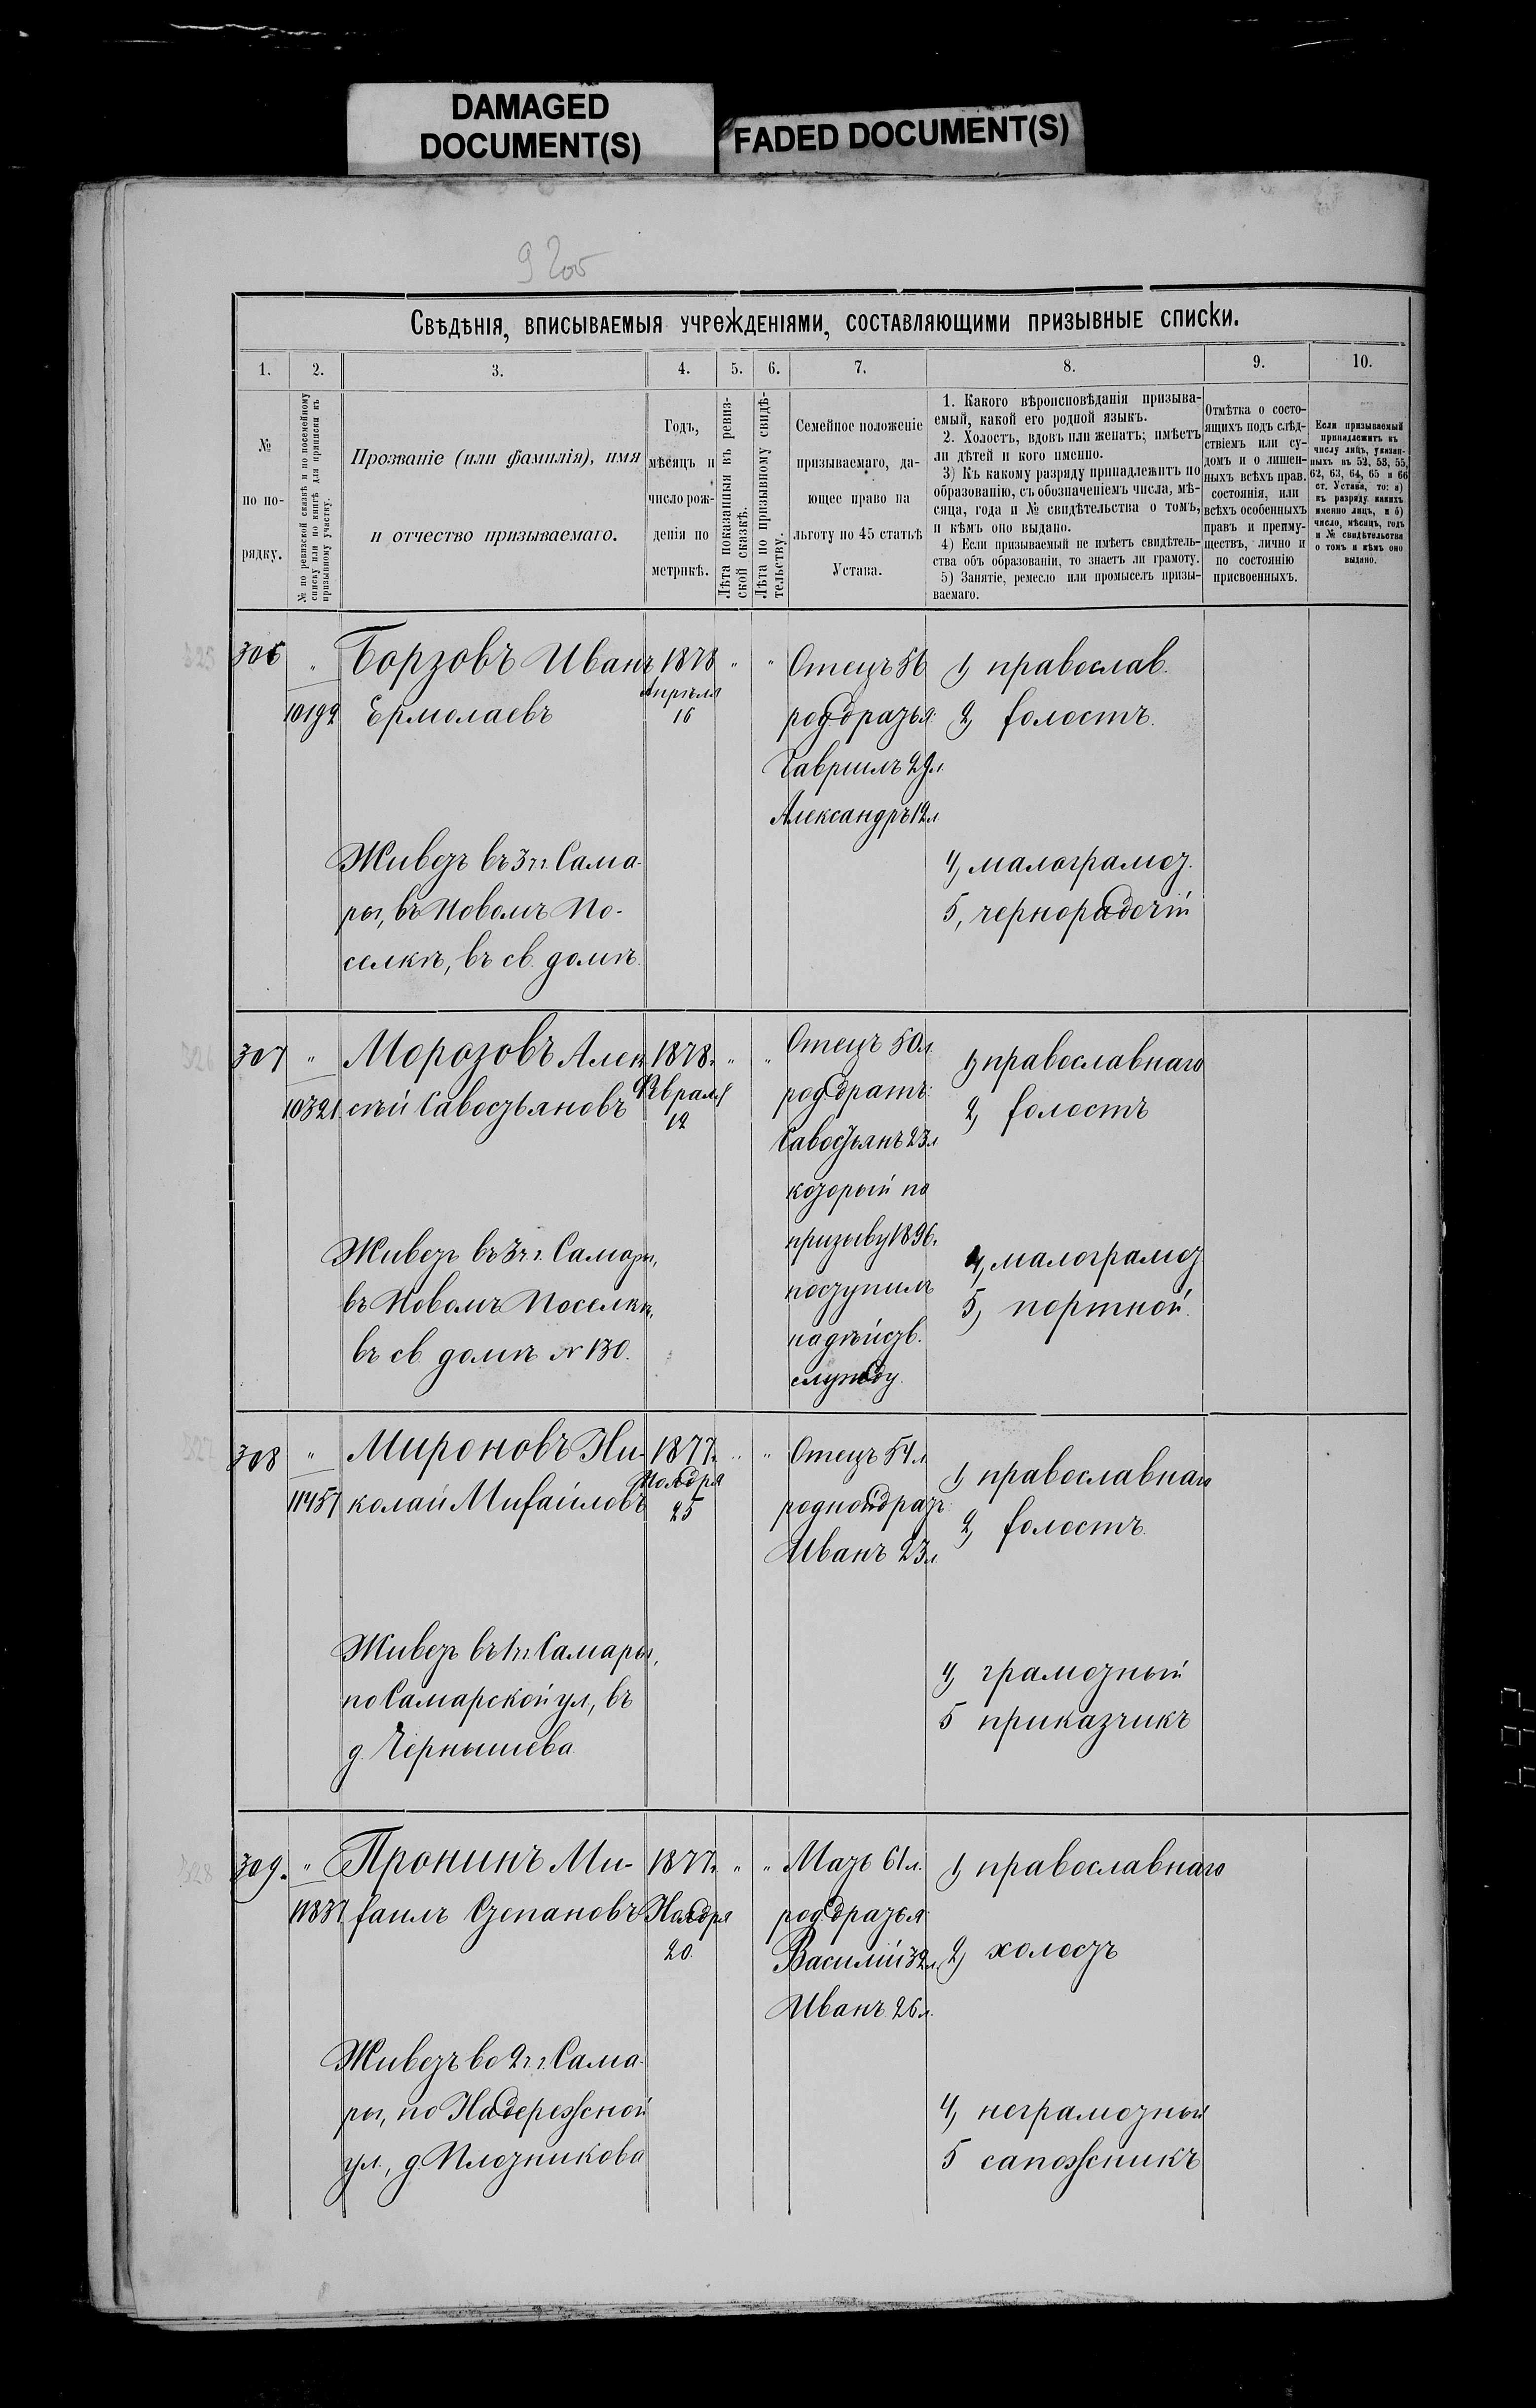 DAMAGED
DOCUMENT(S)
FADED DOCUMENT(S)
Свѣдѣнія, вписываемыя учрежденіями, составляющими призывные списки.
1. 2. 3. 4. 5. 6. 7. 8. 9. 10.
№
по по-
рядку.
№ по ревизской сказкѣ и по посемейному
списку или по книгѣ для приписки къ
призывному участку.
Прозваніе (или фамилія), имя
и отчество призываемаго.
Годъ,
мѣсяцъ и
число рож-
денія по
метрикѣ.
Лѣта показанныя въ ревиз-
ской сказкѣ.
Лѣта по призывному свидѣ-
тельству.
Семейное положеніе
призываемаго, да-
ющее право на
льготу по 45 статьѣ
Устава.
1. Какого вѣроисповѣданія призыва-
емый, какой его родной языкъ.
2. Холостъ, вдовъ или женатъ; имѣетъ
ли дѣтей и кого именно.
3) Къ какому разряду принадлежитъ по
образованію, съ обозначеніемъ числа, мѣ-
сяца, года и № свидѣтельства о томъ,
и кѣмъ оно выдано.
4) Если призываемый не имѣетъ свидѣтель-
ства объ образованіи, то знаетъ ли грамоту.
5) Занятіе, ремесло или промыселъ призы-
ваемаго.
Отмѣтка о состо-
ящихъ подъ слѣд-
ствіемъ или су-
домъ и о лишен-
ныхъ всѣхъ прав.
состоянія, или
всѣхъ особенныхъ
правъ и преиму-
ществъ, лично и
по состоянію
присвоенныхъ.
Если призываемый
принадлежитъ къ
числу лицъ, указан-
ныхъ въ 52, 53, 55,
62, 63, 64, 65 и 66
ст. Устава, то: а)
къ разряду какихъ
именно лицъ, и б)
число, мѣсяцъ, годъ
и № свидѣтельства
о томъ и кѣмъ оно
выдано.
325
306
"
10192
Борзовъ Иванъ
Ермолаевъ
Живетъ въ 3 ч. г. Сама-
ры, въ Новомъ По-
селкѣ, въ св. домѣ.
1878
Апрѣля
16
" "
Отецъ 56
род. братья
Гавріилъ 29 л.
Александръ 12 л
1, православ.
2, холостъ.
4, малограмот.
5, чернорабочій
326
307
"
10321
Морозовъ Алек-
сѣй Савостьяновъ
Живетъ въ 3 ч. г. Самары,
въ Новомъ Поселкѣ,
въ св. домѣ № 130.
1878.
Февраля
12
" "
Отецъ 50 л
род. братъ
Савостьянъ 23 л
который по
призыву 1896 г.
поступилъ
на дѣйств.
службу.
1, православнаго
2, холостъ
4, малограмот
5, портной.
327
308
"
11457
Мироновъ Ни-
колай Михайловъ
Живетъ въ 1 ч. г. Самары,
по Самарской ул, въ
д. Чернышева
1877.
Ноября
25
" "
Отецъ 54 л
родной братъ
Иванъ 23 л.
1, православнаго
2, холостъ.
4, грамотный
5 приказчикъ
328
309.
"
11837
Пронинъ Ми-
хаилъ Степановъ
Живетъ во 2 ч. г. Сама-
ры, по Набережной
ул., д. Плотникова
1877.
Ноября
20
" "
Мать 61 л.
род. братья
Василій 32 л
Иванъ 26 л.
1, православнаго
2, холостъ
4, неграмотный
5 сапожникъ